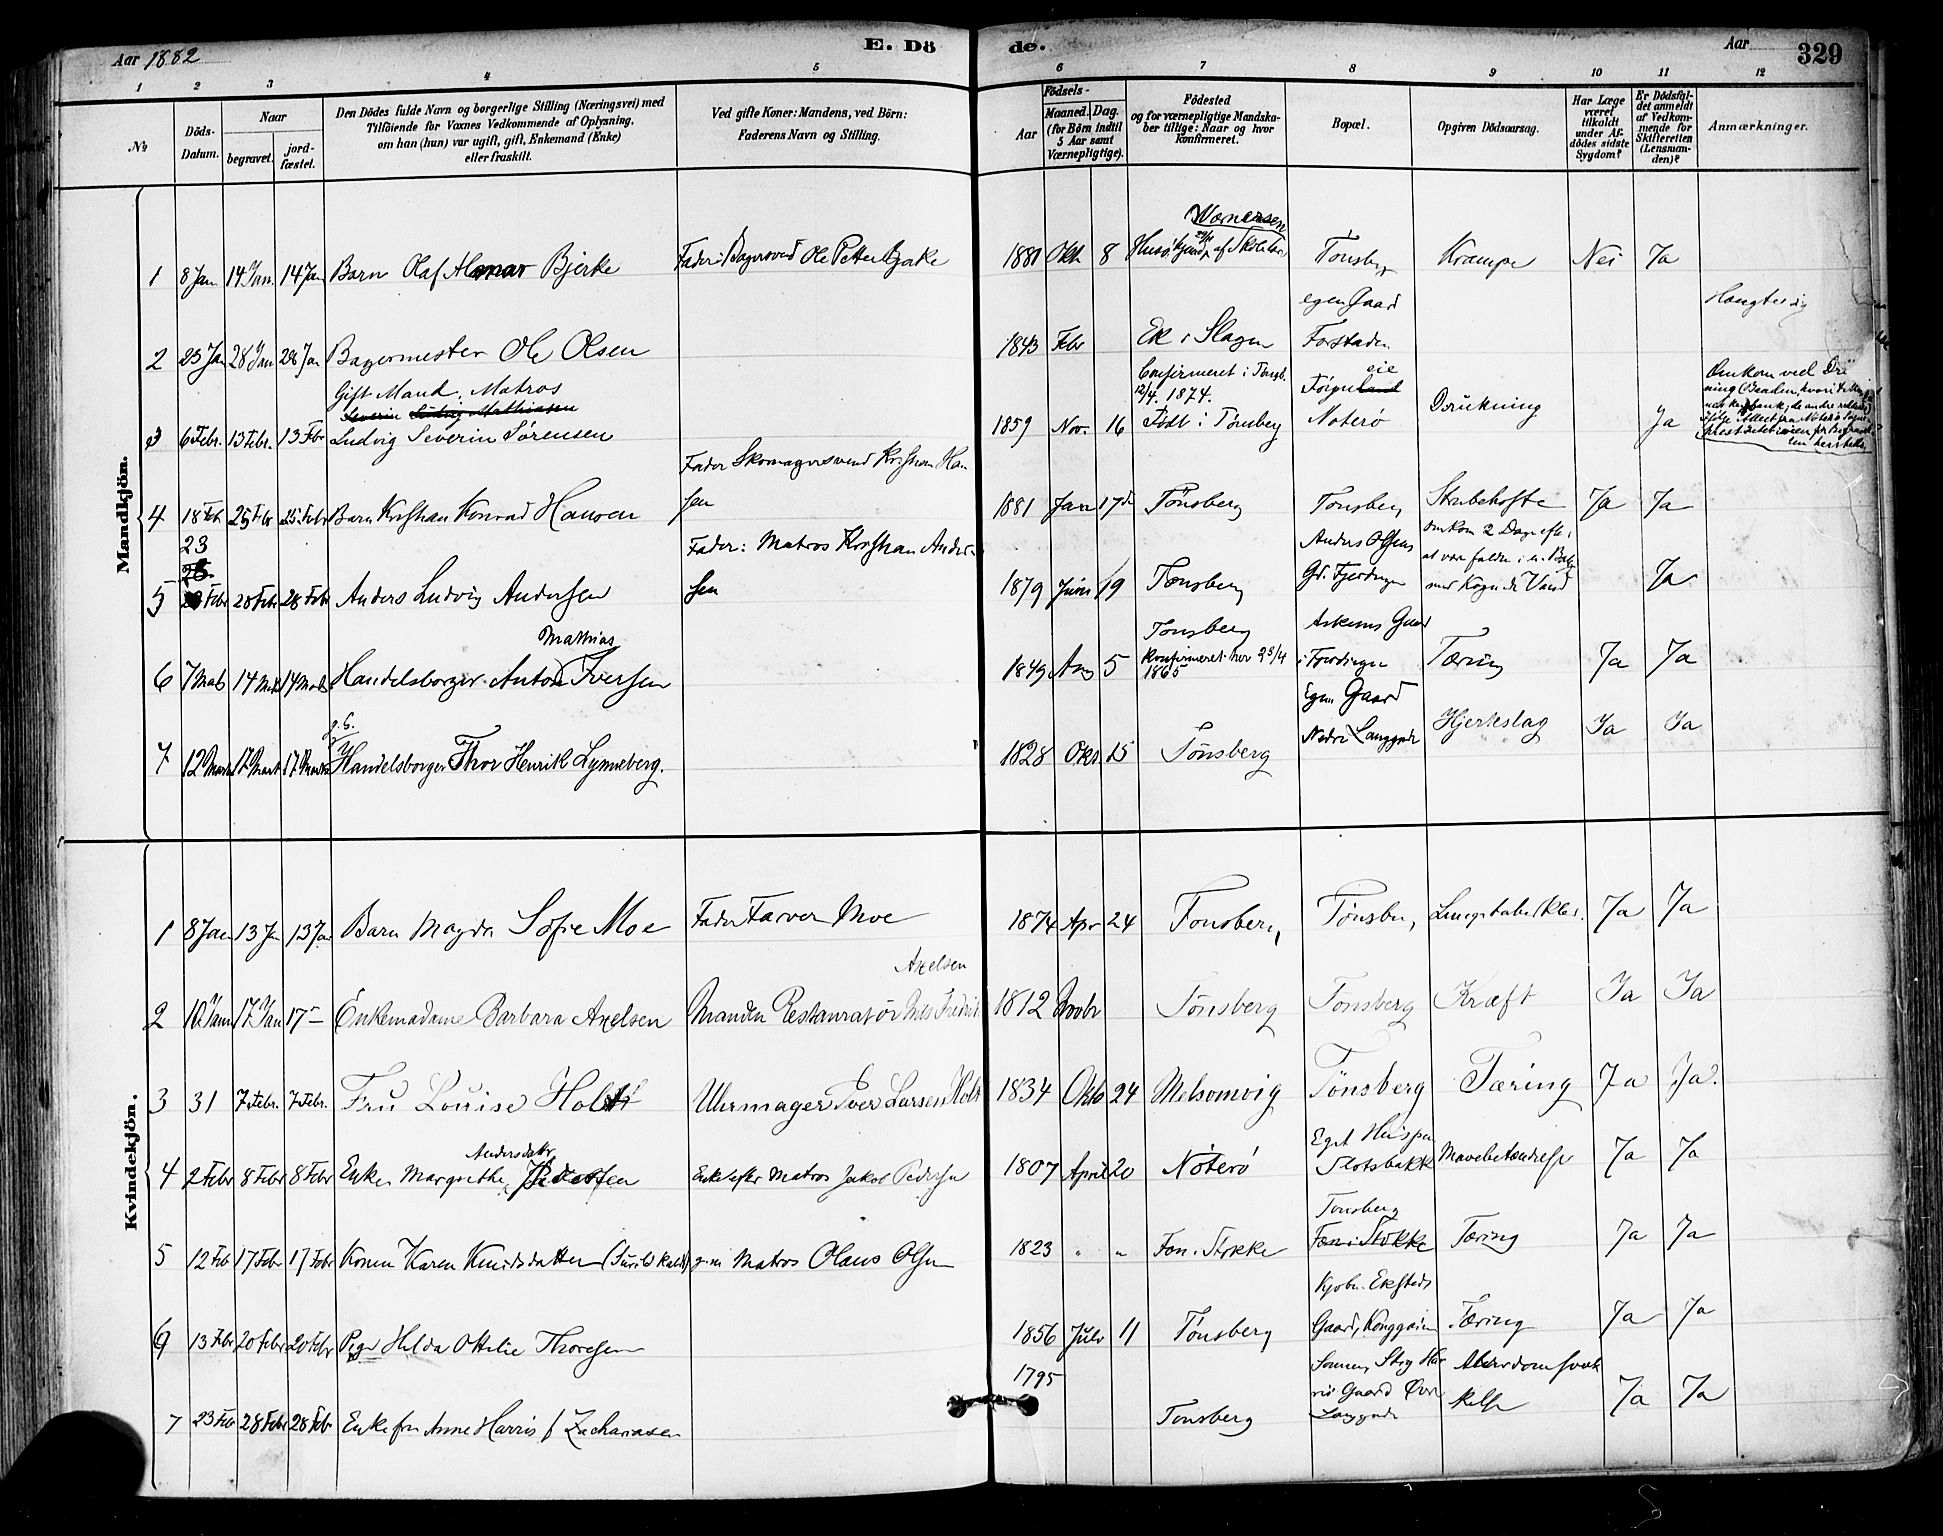 Aar 1882
E. Dö
de.
Aar
329
1 2 3 4 5 6 7 8 9 10 11 12
№
Döds-Datum.
Naar
begravet.
jord-fæstet.
Den Dödes fulde Navn og borgerlige Stilling (Næringsvei) med
Tilföiende for Voxnes Vedkommende af Oplysning,
om han (hun) var ugift, gift, Enkemand (Enke)
eller fraskilt.
Ved gifte Koner: Mandens, ved Börn:
Faderens Navn og Stilling.
Födsels-
Aar
Maaned. Dag.
(for Börn indtil
5 Aar samt
Værnepligtige).
Födested
og for værnepligtige Mandska-
ber tillige: Naar og hvor
konfirmeret.
Bopæl.
Opgiven Dödsaarsag.
Har Læge
været
tilkaldt
under Af-
dödes sidste
Sygdom?
Er Dödsfal-
det anmeldt
af Vedkom-
mende for
Skifteretten
(Lensman-
den)?
Anmærkninger.
Mandkjön.
1 8 Jan 14 Jan. 14 Jan Barn Olaf Bjerke Fader: Bagersvend Ole Petter Bjerke 1881 Okt 8 Tönsberg Krampe Nei Ja
2 23 Jan 28 Jan 28 Jan Bagermester Ole Olsen 1843 Febr Ek i Slagen
egen Gaard
Forstaden
Hængte sig
Gift Mand. Matros
3 6 Febr. 13 Febr. 13 Febr Ludvig Severin Sörensen 1859 Nov. 16
Confirmeret i Tønsb.
12/4. 1874.
Født i Tønsberg
Noterö Drukning Ja
Omkom ved
4 18 Feb 25 Febr 25 Febr Barn Kristian Konrad Hansen
Fader Skomagersvend Kristian Han
sen
1881 Jan 17 Tönsberg Tonsberg Strubehoste Ja Ja
23
5 Febr 28 Febr 28 Febr Anders Ludvig Andersen
Fader: Matros Kristian Ander-
sen
1879 Juni 19 Tønsberg
Anders Olsens
Gd. Fjerdingen
Omkom 2 Dage efter
at være falden i en Balje
med kogende Vand
Ja
6 7 Mats 14 Mts 14 Mats Handelsborger Anton Mathias Iversen 1849 Aug 5
Tonsberg
Konfirmeret her 23/4
1865
Askems Gaard
i Fjerdingen
Tæring Ja Ja
g. G.
7 12 Marts 17 Mart 17 Marts Handelsborger Thor Henrik Lynneberg. 1828 Okt. 15 Tönsberg
Egen Gaard
Nedre Langgade
Hjerteslag Ja Ja
Kvindekjön.
1 8 Jan 13 Jan 13 Jan Barn Magda Sofie Moe Fader Farver Moe 1874 Apr 24 Tonsberg Tönsberg Ja Ja
2 10 Jan 17 Jan 17 – Enkemadame Barbara Axelsen Manden Restauratör Nils Fredrik Axelsen 1812 Novbr Tönsberg Tönsberg Kræft Ja Ja
3 31 7 Febr. 7 Febr. Fru Louise Holst Uhrmager Iver Larsen Holt 1834 Okto 24 Melsomvig Tönsberg Tæring Ja Ja.
4 2 Febr 8 Febr 8 Febr Enke Margrethe Andersdatr Enke efter Matros Jakob Pedersen 1807 April 20 Nöterö
Eget Hus paa
Slotsbakk
Mavebetændelse Ja Ja
5 12 Feb 17 Febr 17 Febr Konen Karen Knudsdatter g. m Matros Olaus Olsen 1823 " " Fön i Stokke
Tonsberg
Fæn i Stokke
Tæring Ja Ja
6 13 Febr 20 Febr 20 Febr Pige Hilda Ottilie Thoresen 1856 Julr 11 Tönsberg
Kjobm. Eksteds
Gaard, Konggaden
Tæring Ja Ja
7 23 Feb 28 Febr 28 Feb Enkefru Anne Harris f Zachariasen 1795 Tonsberg
Sonnen, Har
ris Gaard Övre
Langgade
Alderdomssvæk
kelse
Ja Ja